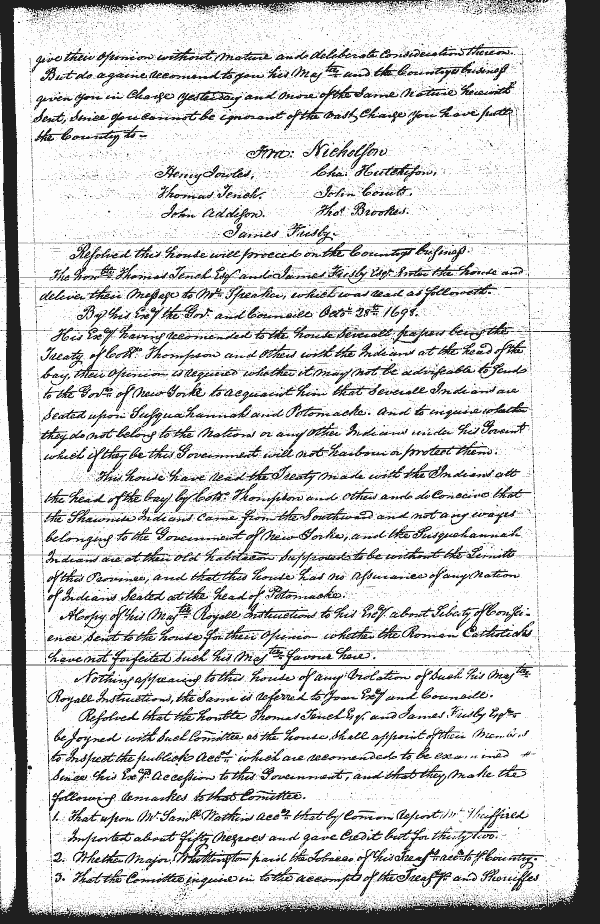 give their opinion without mature and deliberate Consideration thereon.
But do againe recomend to you his Maj.ty and the Countrys business
given you in Charge yesterday and more of the Same Nature herewith
Sent, Since you cannot be ignorant of the vast Charge you have putt
the Country to-
Fra: Nicholson
Henry Jowles, Cha: Hutchison,
Thomas Tench. John Courts.
John Addison. Tho.s Brookes.
James Frisby.
Resolved this house will proceed on the Countrys business.
The hon.ble Thomas Tench Esq.r and James Frisby Esq.r Enter the house and
deliver their Message to Mr. Speaker, which was read as followeth.
By his Ex.cy the Gov.r and Councill Octo.r 28.th 1698.
His Ex.cy having recomended to the house Severall papers being the
Treaty of Coll.o Thompson and others with the Indians at the head of the
bay, their opinion is required whether it may not be advisable to Send
to the Gov.r of New Yorke to acquaint him that Severall Indians are
Seated upon Susquahannah and Potomacke. And to inquire whether
they do not belong to the Nations or any other Indians under his Governt
which if they be this Government will not harbour or protect them.
This house have read the Treaty made with the Indians att
the head of the bay by Coll.o Thompson and others and do Conceive that
the Shawnise Indians came from the Southward and not any wayes
belonging to the Government of New Yorke, and the Susquehannah
Indians are at their old habitacon Supposed to be without the Limitts
of this Province, and that this house has no assurance of any Nation
of Indians Seated at the head of Potomacke.
A Copy of his Maj.tys Royall Instructions to his Ex.cy about Liberty of Consci-
ence Sent to the house for their Opinion whether the Roman Catholicks
have not forfeited Such his Maj.tys favour here.
Nothing appearing to this house of any Violation of Such his Maj.tys
Royall Instructions, the Same is referred to Your Ex.cy and Councill.
Resolved that the honble Thomas Tench Esq.r and James Frisby Esq.r
be Joyned with Such Comittee as the house shall appoint of their Members
to Inspect the publick Acc.ts which are recomended to be examined
Since his Ex.cys Accession to this Government, and that they make the
following remarkes to that Comittee.
1. That upon Mr Sam.ll Watkins Acco.t that by Comon Report Sheffeild
Imported about fifty Negroes and gave Credit but for thirty two.
2. Whether Major Whittington paid the Tobaccos of his Treas.rs acco.t to ye Country.
3. That the Comittee inquire in to the accompts of the Treas.rs and Sheriffes